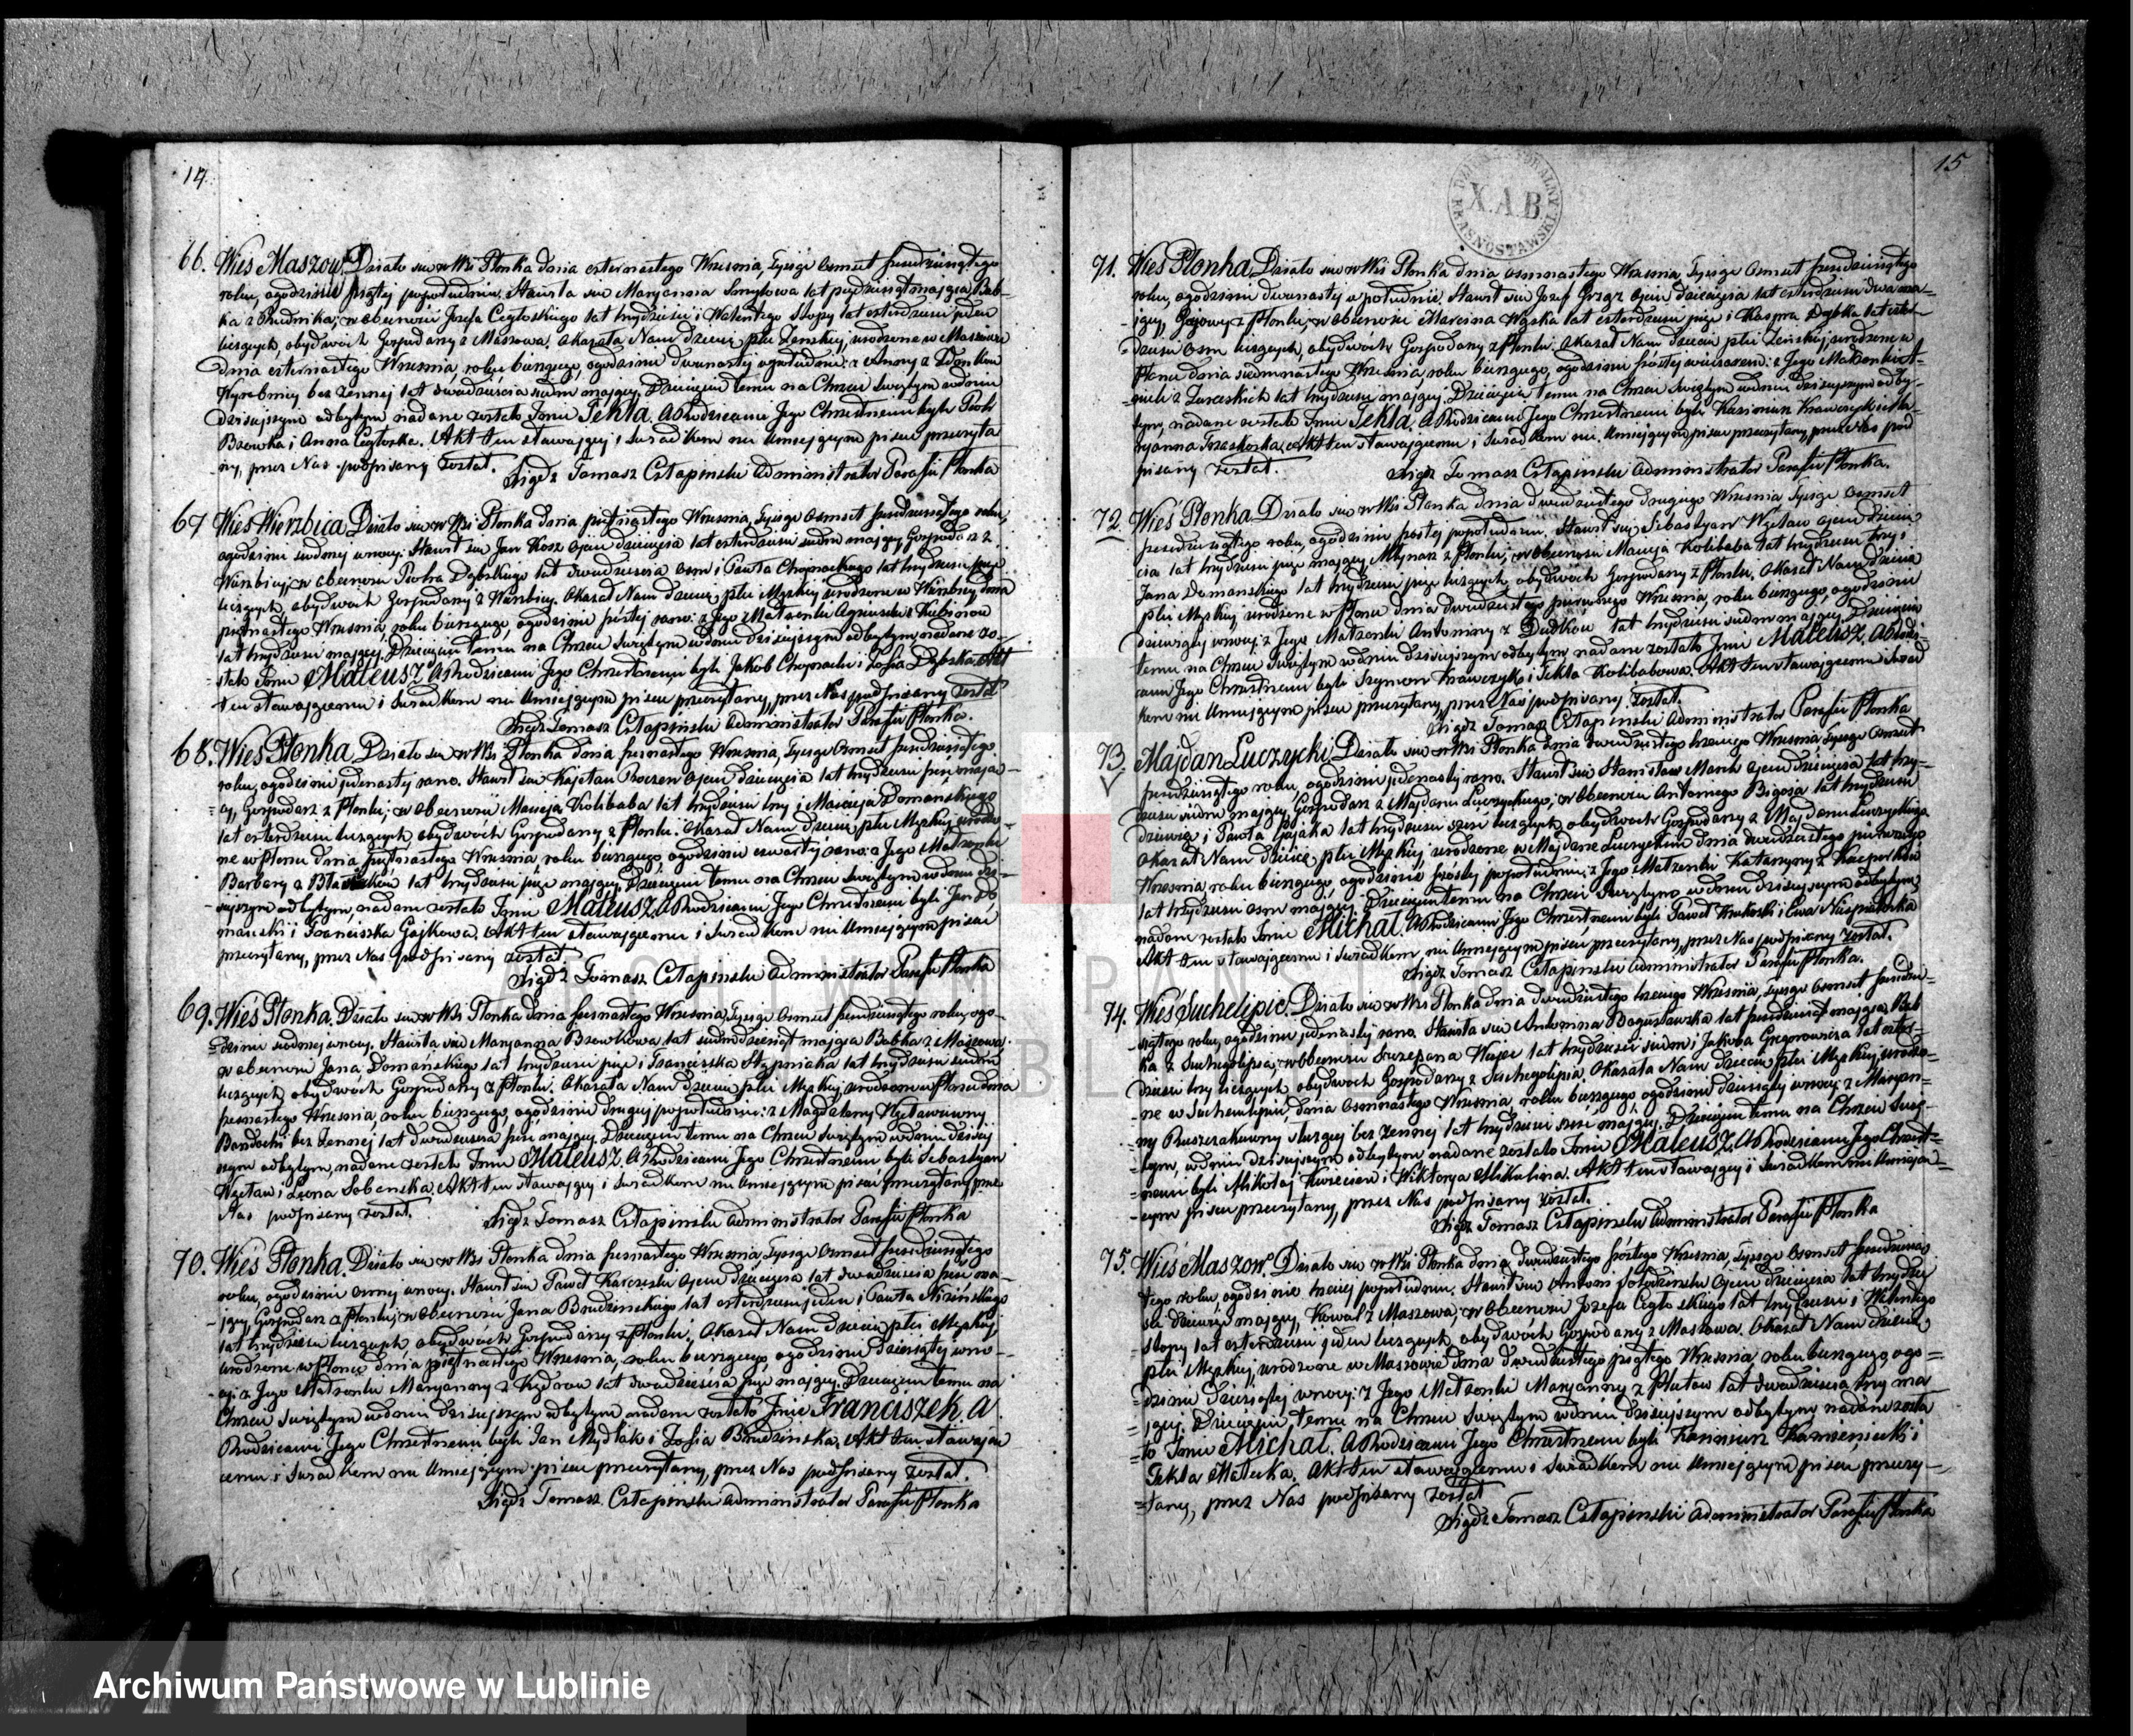 14
66. Wieś Maszow. Działo się w Wsi Płonka dnia czternastego Września, Tysiąc Ośmset pięćdziesiątego
roku, o godzinie piątej popołudniu. Stawiła się Maryanna lat pięćdziesiąt mająca Bab-
ka z Rudnika; w obecności Józefa Cegłoskiego lat trzydzieści i Walentego Słopy lat czterdzieści jeden
liczących, obydwóch Gospodarzy z Maszowa. Okazała Nam dziecię płci Żeńskiej, urodzone w Maszowie
dnia czternastego Września, roku bieżącego, o godzinie dwunastej w południe; z Anny
Wyrobnicy bez żennej lat dwadzieścia siedm mającej. Dziecięciu temu na Chrzcie Świętym w dniu
dzisiejszym odbytym nadane zostało Imie Tekla. A Rodzicami Jego Chrzestnemi byli Piotr
Bzowka i Anna Cegłoska. Akt ten stawającej i świadkom nie umiejącym pisać przeczyta-
ny, przez Nas podpisany został. Xiądz Tomasz Człapinski Administrator Parafii Płonka
67 Wieś Wierzbica Działo się w Wsi Płonka dnia piętnastego Września, Tysiąc Ośmset pięćdziesiątego roku,
o godzinie siódmej w nocy. Stawił się Jan Kosz Ojciec dziecięcia lat czterdzieści siedm mający, Gospodarz z
Wierzbicy; w obecności Piotra Dąbskiego lat dwadzieścia ośm i Pawła lat trzydzieści pięć
liczących, obydwóch Gospodarzy z Wierzbicy. Okazał Nam dziecię płci Męzkiej urodzone w Wierzbicy dnia
piętnastego Września, roku bieżącego, o godzinie piątej rano; z Jego Małżonki Agnieszki z
lat trzydzieści mającej. Dziecięciu temu na Chrzcie Świętym w dniu dzisiejszym odbytym nadane zo-
stało Imie Mateusz. A Rodzicami Jego Chrzestnemi byli Jakób i Zofia Dąbska. Akt
ten stawającemu i świadkom nie umiejącym pisać przeczytany, przez Nas podpisany został
Xiądz Tomasz Człapinski Administrator Parafii Płonka.
68. Wieś Płonka, Działo się w Wsi Płonka dnia Września, Tysiąc Ośmset pięćdziesiątego
roku, o godzinie jedenastej rano. Stawił się Kajetan Ojciec dziecięcia lat trzydzieści mają-
cy, Gospodarz z Płonki; w obecności Macieja Kolibaba lat trzydzieści trzy i Macieja Domanskiego
lat czterdzieści liczących, obydwóch Gospodarzy z Płonki. Okazał Nam dziecię płci Męzkiej urodzo-
ne w Płonce dnia piętnastego Września, roku bieżącego, o godzinie czwartej rano; z Jego Małżonki
Barbary z lat trzydzieści pięć mającej. Dziecięciu temu na Chrzcie Świętym w dniu dzi-
siejszym odbytym, nadane zostało Imie Mateusz. A Rodzicami Jego Chrzestnemi byli Jan Do-
manski i Franciszka Gajkowa. Akt ten stawającemu i świadkom nie umiejącym pisać
przeczytany, przez Nas podpisany został.
Xiądz Tomasz Człapinski Administrator Parafii Płonka
69. Wieś Płonka. Działo się w Wsi Płonka dnia Września, Tysiąc Ośmset pięćdziesiątego roku, o go-
dzinie siódmej w nocy. Stawiła się Maryanna Bzowkowa lat siedmdziesiąt mająca Babka z Maszowa.
w obecności Jana Domańskiego lat trzydzieści pięć i Franciszka lat trzydzieści siedm
liczących, obydwóch Gospodarzy z Płonki. Okazała Nam dziecię płci Męzkiej, urodzone w Płonce dnia
Września, roku bieżącego, o godzinie drugiej popołudniu; z Magdaleny Wzetawianny
bez żennej lat dwadzieścia mającej. Dziecięciu temu na Chrzcie Świętym w dniu dzisiej-
szym odbytym, nadane zostało Imie Mateusz. A Rodzicami Jego Chrzestnemi byli Sebastyan
Wzetaw i Sobenska. Akt ten stawającej i świadkom nie umiejącym pisać przeczytany, przez
Nas podpisany został. Xiądz Tomasz Człapinski Administrator Parafii Płonka
70. Wieś Płonka. Działo się w Wsi Płonka dnia Września, Tysiąc Ośmset pięćdziesiątego
roku, o godzinie ósmej w nocy. Stawił się Paweł Ojciec dziecięcia lat dwadzieścia ma-
jący, Gospodarz z Płonki; w obecności Jana Brudzinskiego lat czterdzieści jeden i Pawła
lat trzydzieści liczących, obydwóch Gospodarzy z Płonki. Okazał Nam dziecię płci Męzkiej,
urodzone w Płonce dnia piętnastego Września, roku bieżącego, o godzinie dziesiątej w no-
cy; z Jego Małżonki Maryanny z lat dwadzieścia pięć mającej. Dziecięciu temu na
Chrzcie Świętym w dniu dzisiejszym odbytym nadane zostało Imie Franciszek. A
Rodzicami Jego Chrzestnemi byli Jan Mydlak i Zofia Brudzinska. Akt ten stawają-
cemu i świadkom nie umiejącym pisać przeczytany, przez Nas podpisany został.
Xiądz Tomasz Człapinski Administrator Parafii Płonka
15
X.A.B
KRASNOSTAWSKI
71. Wieś Płonka Działo się w Wsi Płonka dnia ośmnastego Września, Tysiąc Ośmset pięćdziesiątego
roku, o godzinie dwunastej w południe. Stawił się Józef Ojciec dziecięcia lat czterdzieści dwa ma-
jący, Gajowy z Płonki; w obecności Marcina lat czterdzieści pięć i Kaspra lat czter-
dzieści ośm liczących, obydwóch Gospodarzy z Płonki. Okazał Nam dziecię płci Żeńskiej; urodzone w
Płonce dnia siedmnastego Września, roku bieżącego, o godzinie szóstej wieczorem; z Jego Małżonki
z lat trzydzieści mającej. Dziecięciu temu na Chrzcie Świętym w dniu dzisiejszym odby-
tym, nadane zostało Imie Tekla. A Rodzicami Jego Chrzestnemi byli Kazimierz Krawczyk i Ma-
ryanna. Akt ten stawającemu i świadkom nie umiejącym pisać przeczytany, przez Nas pod-
pisany został. Xiądz Tomasz Człapinski Administrator Parafii Płonka.
72. Wieś Płonka Działo się w Wsi Płonka dnia dwudziestego drugiego Września Tysiąc Ośmset
pięćdziesiątego roku, o godzinie piątej popołudniu. Stawił się Sebastyan Wzetaw Ojciec dziecię-
cia lat trzydzieści pięć mający, Młynarz z Płonki; w obecności Macieja Kolibaba lat trzydzieści trzy i
Jana Domanskiego lat trzydzieści pięć liczących, obydwóch Gospodarzy z Płonki. Okazał Nam dziecię
płci Męzkiej, urodzone w Płonce dnia dwudziestego pierwszego Września, roku bieżącego, o godzinie
dziewiątej w nocy; z Jego Małżonki Antoniny z Dudków lat trzydzieści siedm mającej. Dziecięciu
temu na Chrzcie Świętym w dniu dzisiejszym odbytym, nadane zostało Imie Mateusz. A Rodzi-
cami Jego Chrzestnemi byli Szymon Krawczyk i Tekla Kolibabowa. Akt ten stawającemu i świad-
kom nie umiejącym pisać przeczytany, przez Nas podpisany został.
Xiądz Tomasz Człapinski Administrator Parafii Płonka
73. Majdan Luczycki, Działo się w Wsi Płonka dnia dwudziestego trzeciego Września, Tysiąc Ośmset
pięćdziesiątego roku, o godzinie jedenastej rano. Stawił się Stanisław Marek Ojciec dziecięcia lat trzy-
dzieści siedm mający, Gospodarz z Majdanu Luczyckiego; w obecności Antoniego Bigosa lat trzydzieści
dziewięć i Pawła Gajaka lat trzydzieści sześć liczących, obydwóch Gospodarzy z Majdanu Luczyckiego.
Okazał Nam dziecię płci Męzkiej, urodzone w Majdanie Luczyckim dnia dwudziestego pierwszego
Września, roku bieżącego, o godzinie piątej popołudniu; z Jego Małżonki Katarzyny z Kacperków
lat trzydzieści ośm mającej. Dziecięciu temu na Chrzcie Świętym w dniu dzisiejszym odbytym,
nadane zostało Imie Michał. A Rodzicami Jego Chrzestnemi byli Paweł i Ewa
Akt ten stawającemu i świadkom, nie umiejącym pisać przeczytany, przez Nas podpisany został.
Xiądz Tomasz Człapinski Administrator Parafii Płonka.
74. Wieś Suchelipie. Działo się w Wsi Płonka dnia dwudziestego trzeciego Września, Tysiąc Ośmset pięćdzie-
siątego roku, o godzinie jedenastej rano. Stawiła się Antonina Bogusławska lat pięćdziesiąt mająca Bab-
ka z Suchegolipia; w obecności Szczepana lat trzydzieści siedm i Jakóba Gregorowicza lat czter-
dzieści trzy liczących, obydwóch Gospodarzy z Suchegolipia. Okazała Nam dziecię płci Męzkiej, urodzo-
ne w Suchemlipiu, dnia ośmnastego Września roku bieżącego o godzinie dziesiątej w nocy; z Maryan-
ny służącej bez żennej lat trzydzieści sześć mającej. Dziecięciu temu na Chrzcie Świę-
tym, w dniu dzisiejszym odbytym nadane zostało Imie Mateusz. A Rodzicami Jego Chrzest-
nemi byli Mikołaj i Wiktorya Mikulina. Akt ten stawającej i świadkom nie umieją-
cym pisać przeczytany, przez Nas podpisany został.
Xiądz Tomasz Człapinski Administrator Parafii Płonka
75. Wieś Maszow. Działo się w Wsi Płonka dnia dwudziestego szóstego Września, Tysiąc Ośmset pięćdziesią-
tego roku, o godzinie trzeciej popołudniu. Stawił się Antoni Ojciec dziecięcia lat trzydzie-
ści dziewięć mający, Kowal z Maszowa; w obecności Józefa Cegłoskiego lat trzydzieści i Walentego
Słopy lat czterdzieści jeden liczących, obydwóch Gospodarzy z Maszowa. Okazał Nam dziecię
płci Męzkiej, urodzone w Maszowie dnia dwudziestego piątego Września, roku bieżącego o go-
dzinie dziesiątej w nocy; z Jego Małżonki Maryanny z lat dwadzieścia trzy ma-
jącej. Dziecięciu temu na Chrzcie Świętym w dniu dzisiejszym odbytym nadane zosta-
ło Imie Michał. A Rodzicami Jego Chrzestnemi byli Kazimierz Kamieniecki i
Tekla Matecka. Akt ten stawającemu i świadkom nie umiejącym pisać przeczy-
tany, przez Nas podpisany został
Xiądz Tomasz Człapinski Administrator Parafii Płonka
Archiwum Państwowe w Lublinie